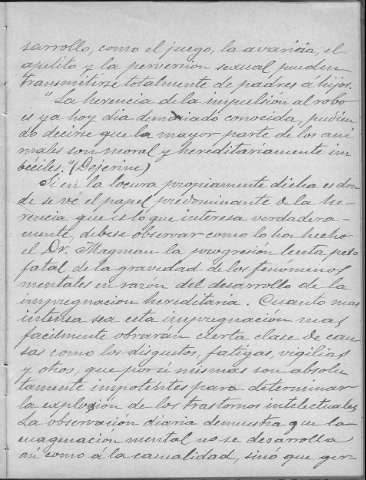 sarrollo, como el juego, la avaricia, el
apetito y la perversion sexual pueden
transmitirse totalmente de padres á hijos.
"La herencia de la impulsión al robo
es ya hoy dia demasiado conocida, pudien
do decirse que la mayor parte de los cri
minales son moral y hereditariamente im
béciles." (Dejerine)
Si en la locura propiamente dicha es don
de se vé el papel predominante de la he-
rencia que es lo que interesa verdadera-
mente, debese observar como lo ha hecho
el Dr. Magnan la progresión lenta pero
fatal de la gravedad de los fenómenos
mentales en razon del desarrollo de la
impregnacion hereditaria. Cuanto mas
intensa sea esta impregnacion mas
facilmente obrarán cierta clase de cau
sas como los disgustos, fatigas, vigilias
y otros, que por si mismas son absolu
tamente impotentes para determinar
la explosión de los trastornos intelectuales
La observacion diaria demuestra que la
enagenacion mental no se desarrolla
asi como á la casualidad, sinó que ger-